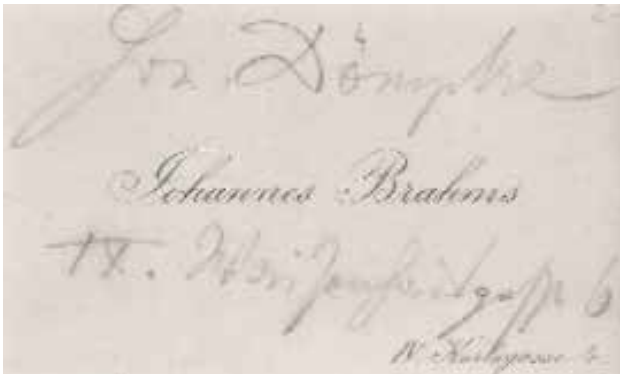 Dömpke
Johannes Brahms
IX. 6
IV. Karlsgasse 4.